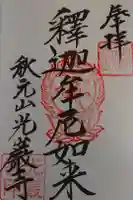 奉拝
釋迦牟尼如来
秋元山光巌寺